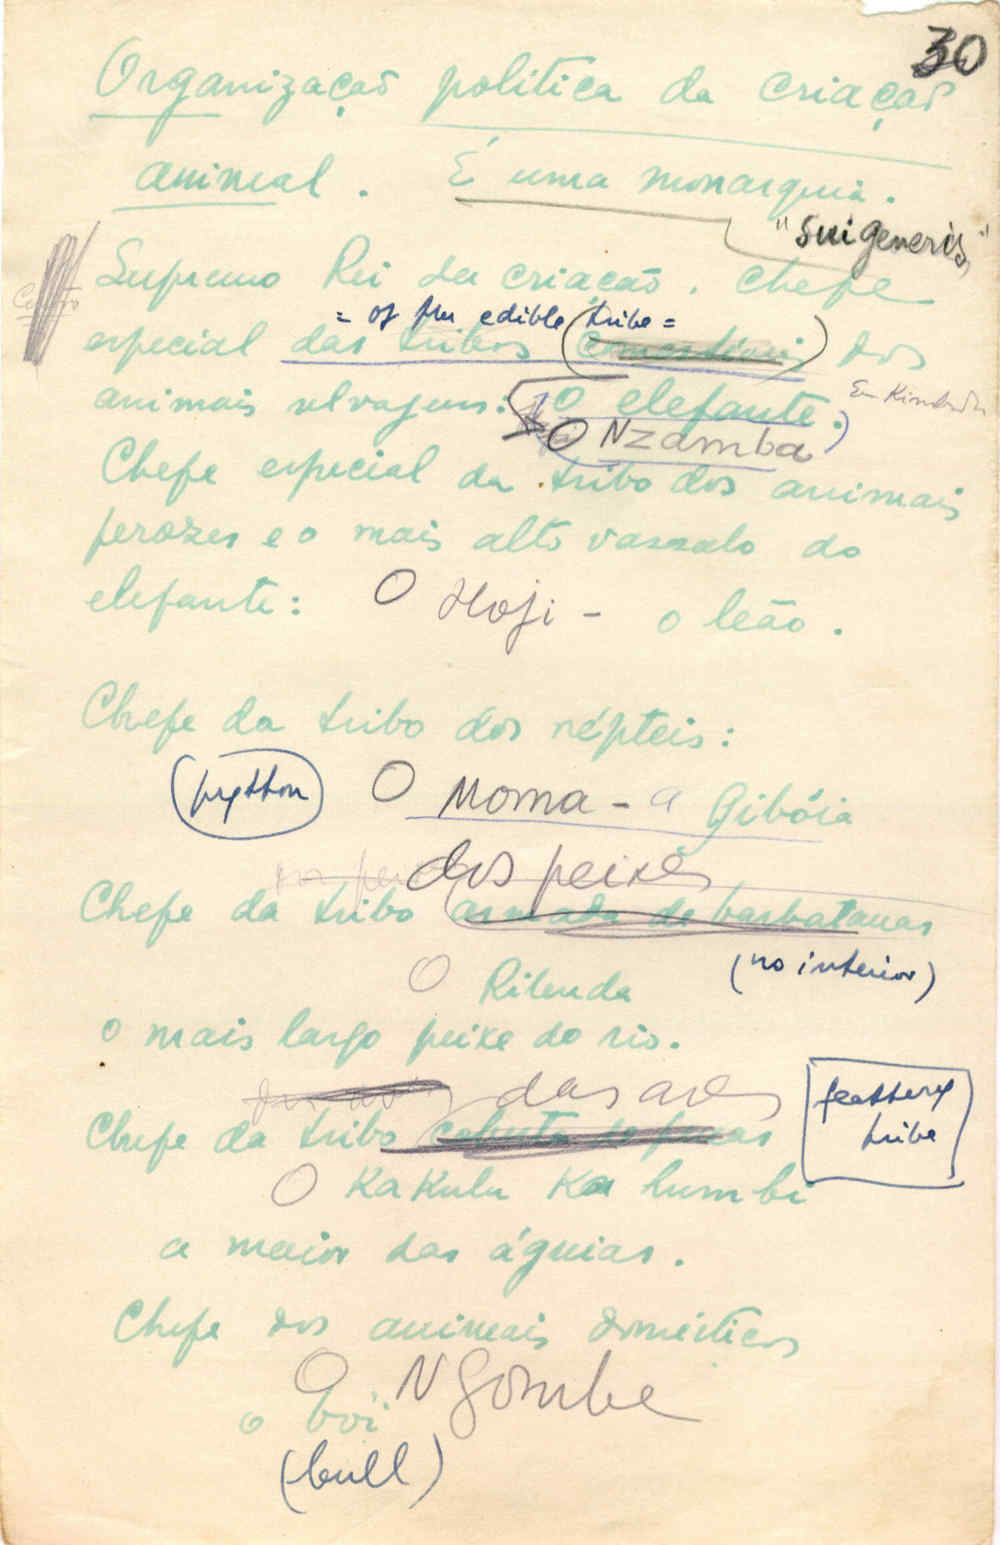 30
Organização politica da criação
animal. É uma monarquia.
"sui generis"
Supremo Rei da criação. Chefe
= of the edible tribe =
especial das tribos dos
animais selvagens: O elefante.
O Nzamba
Chefe especial da tribo dos animais
ferozes e o mais alto vassalo do
elefante: O Hoji - o leão.
Chefe da tribo dos répteis:
(python) O Moma - a Gibóia
dos peixes
Chefe da tribo armada de barbatanas
(no interior)
O Rilenda
o mais largo peixe do rio.
das aves
feathery
tribe
Chefe da tribo coberta de penas
O Kakulu Ka humbi
a maior das águias.
Chefe dos animais domésticos
O Ngombe
o boi
(bull)